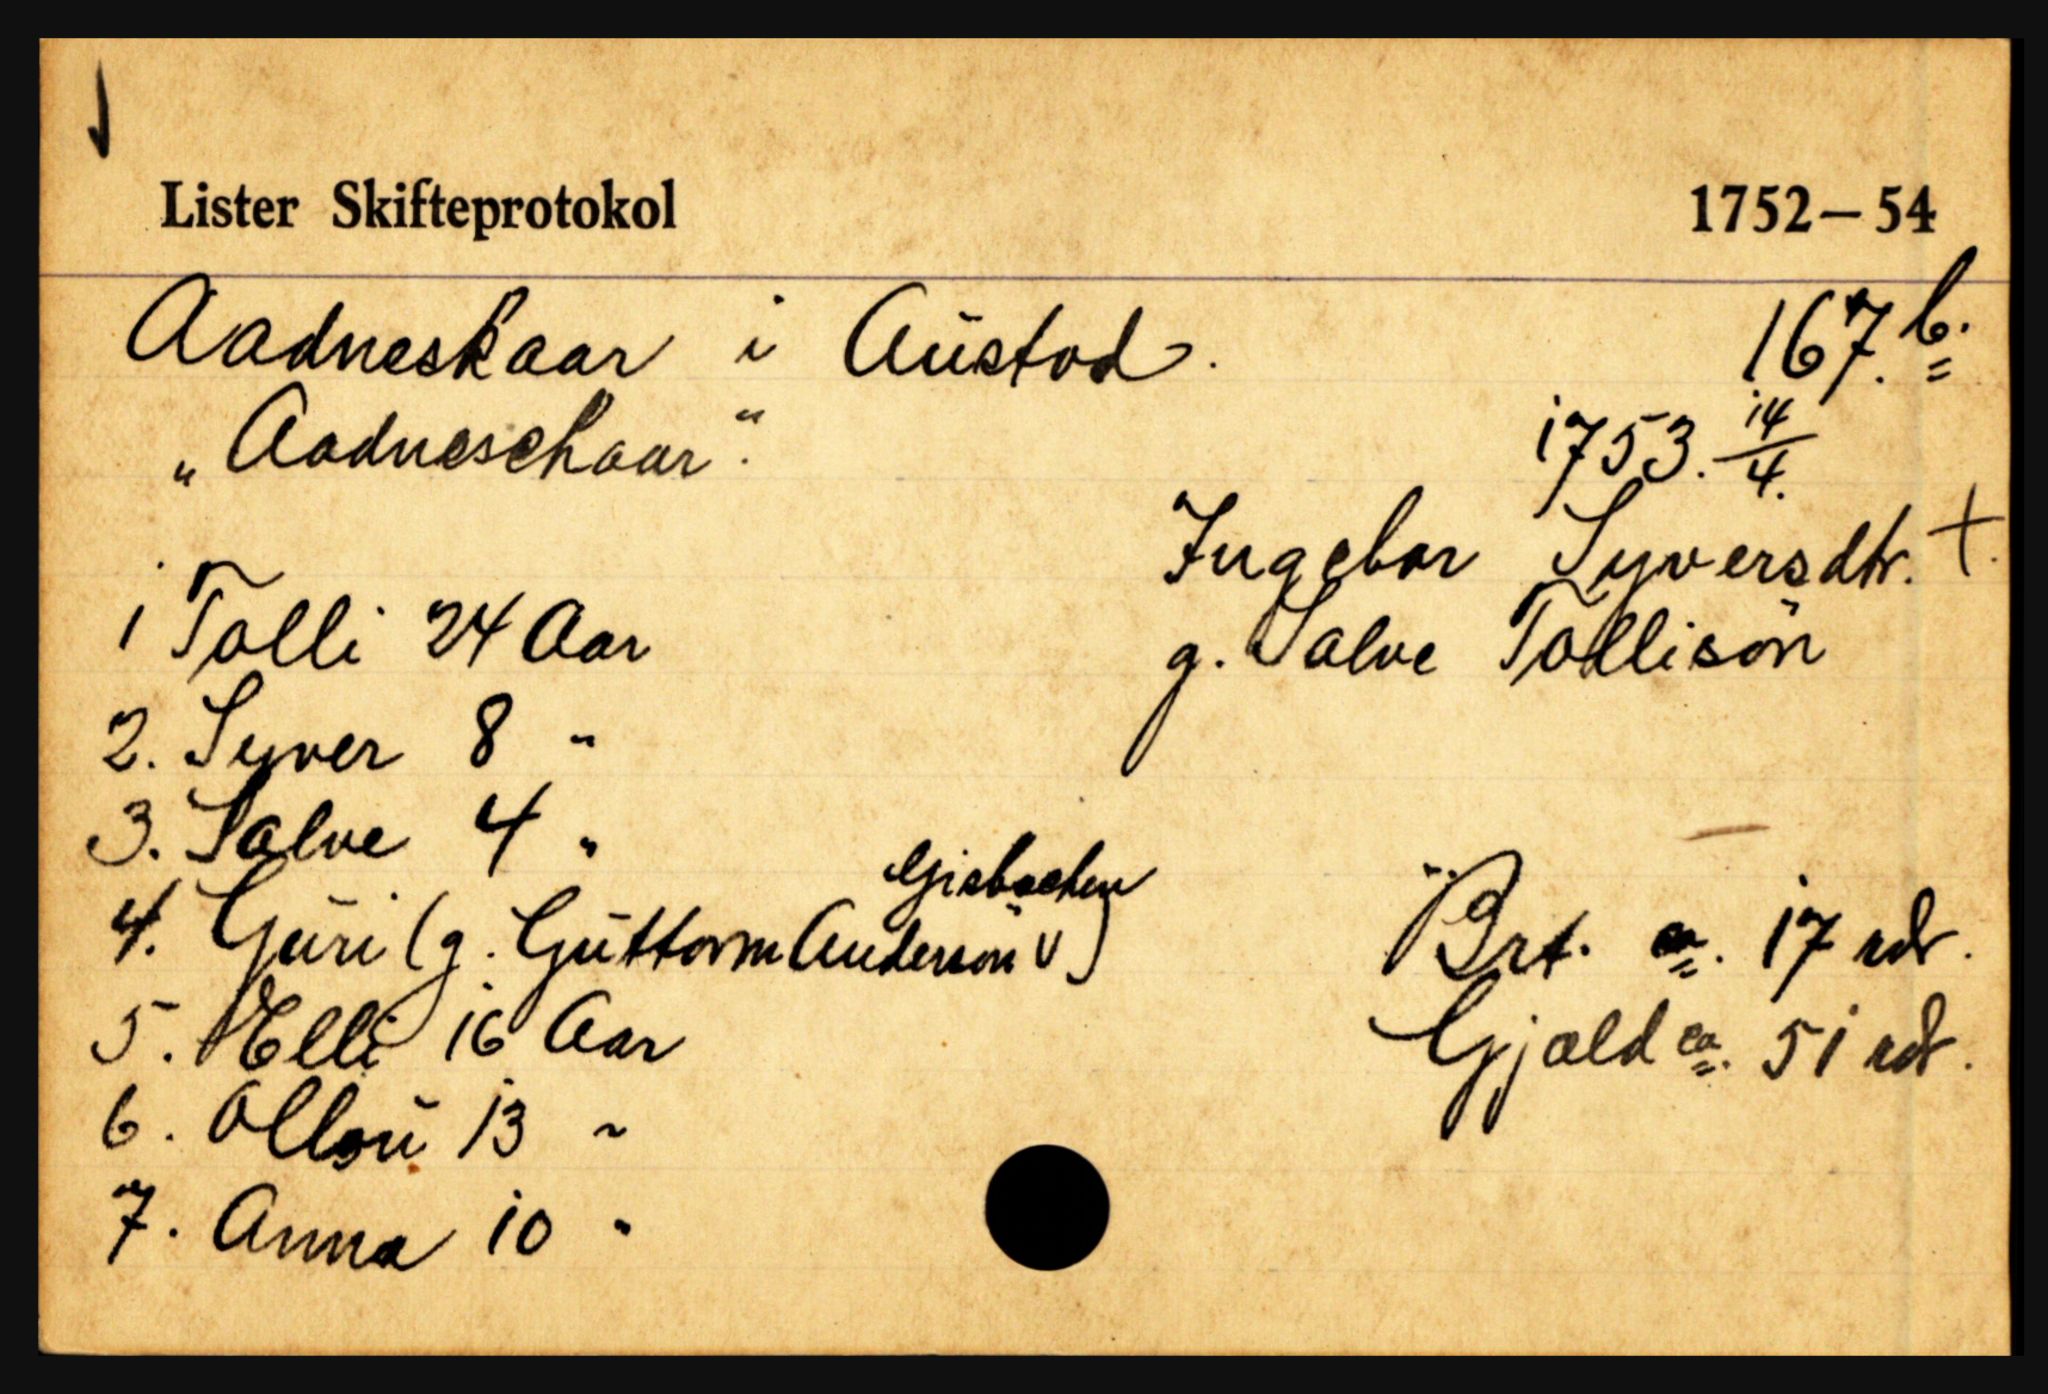 Lister Skifteprotokol 1752–54
Aadneskaar i Austad. 167.b.
„Aadneschaar“. 1753. 14/4.
Ingebor Syversdtr. +.
1 Tolli 24 Aar g. Salve Tollisön
2. Syver 8 "
3. Salve 4 "
4. Guri (g. Guttorm Anderson v Gisbachen)
Brt. ca. 17 rdr.
5. Elli 16 Aar Gjæld ca. 51 rdr.
6. Ollou 13 "
7. Anna 10 "